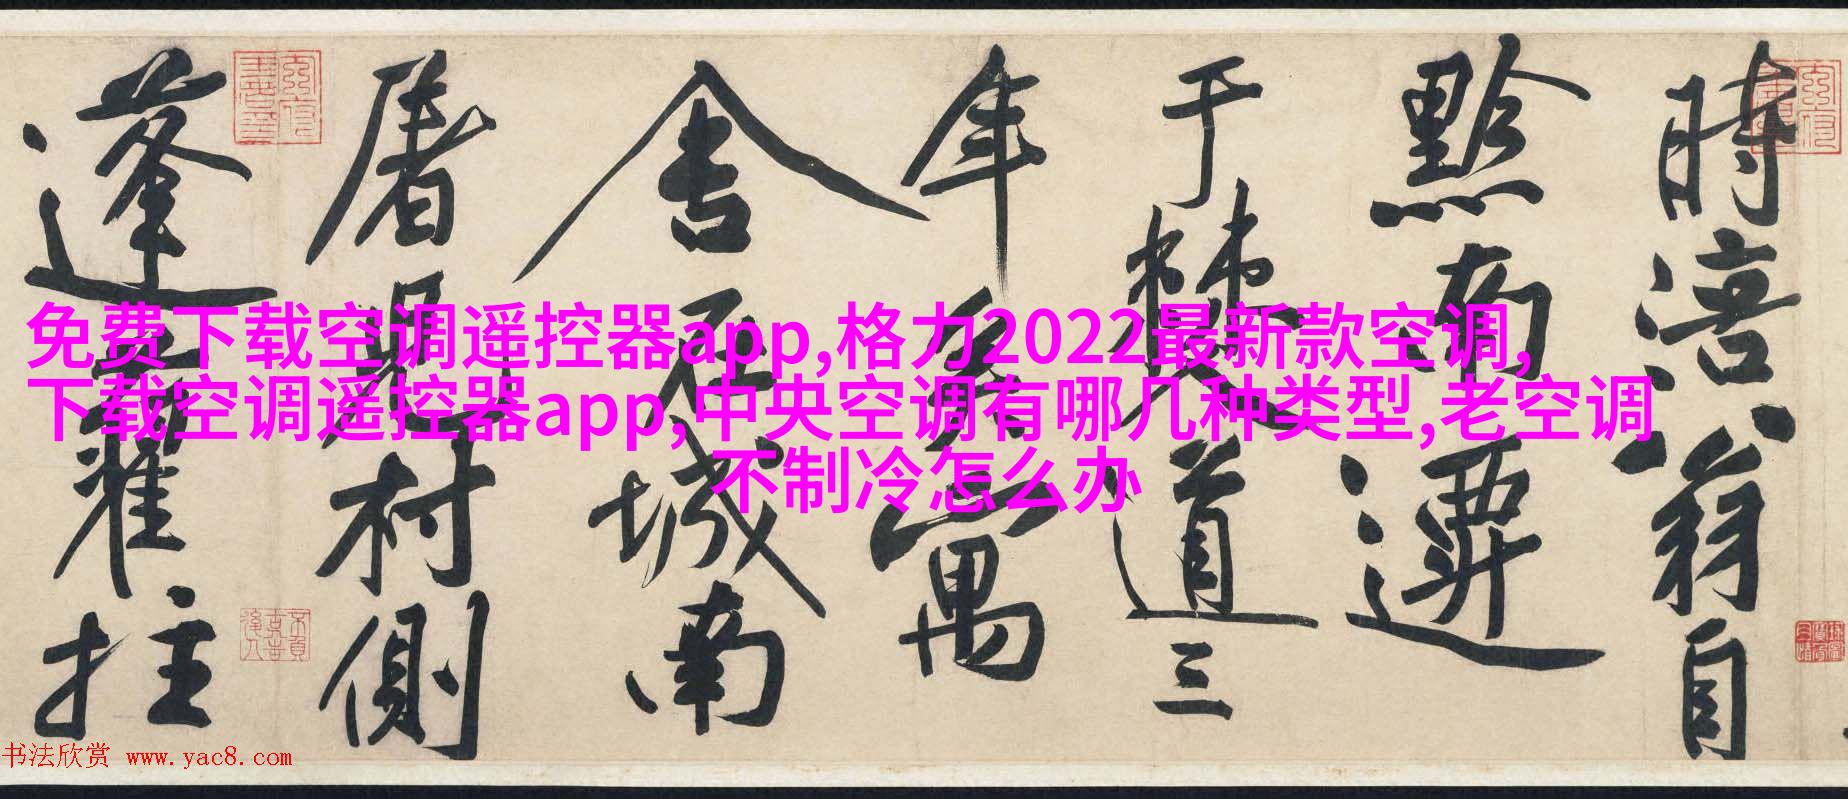 時涪翁自
黔南遷
于棘道三
年矣寓
舍在城南
屠兒村側
蓬藋拄
免费下载空调遥控器app,格力2022最新款空调,
下载空调遥控器app,中央空调有哪几种类型,老空调
不制冷怎么办
书法欣赏 www.yac8.com